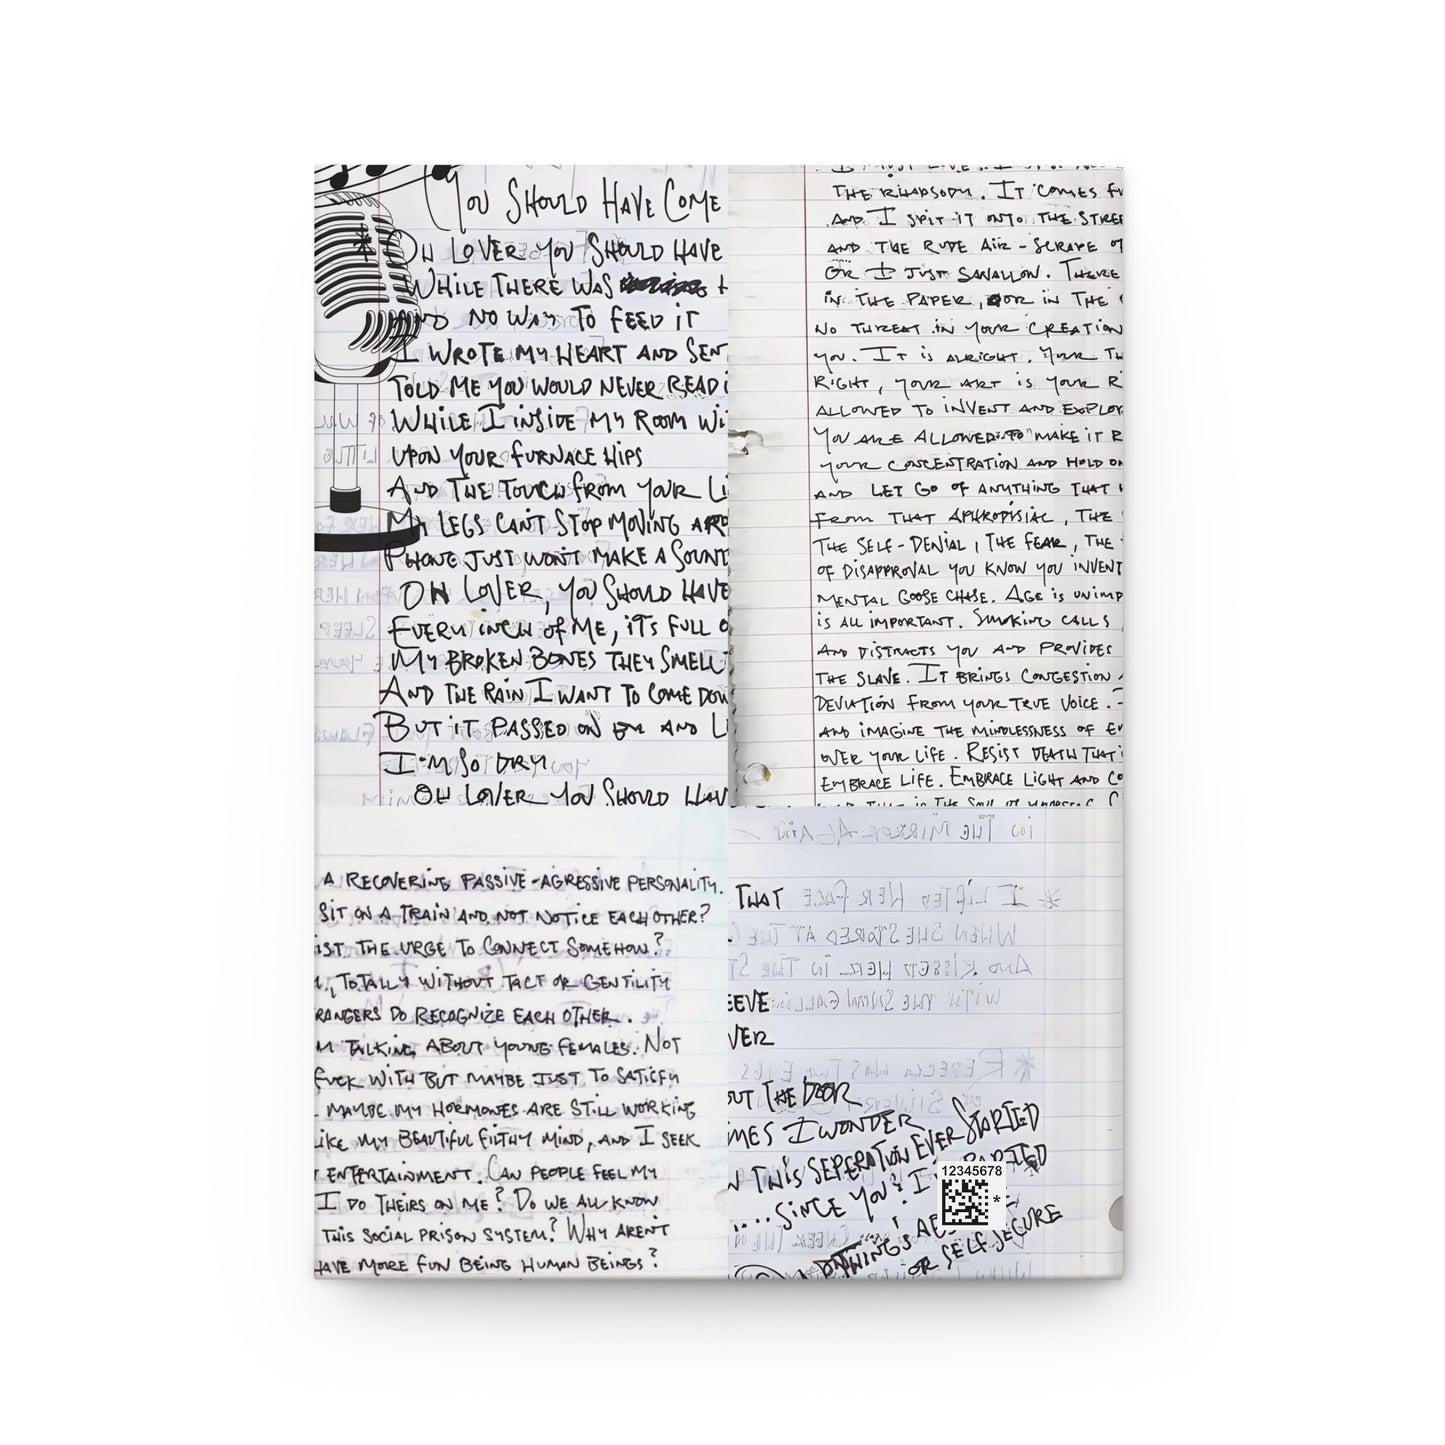 You Should Have Come
Oh Lover you should have
While there was
And no way to feed it
I wrote my heart and sent
Told me you would never read i
While I inside my room wi
upon your furnace hips
And the touch from your Li
My legs can't stop moving aro
Phone just won't make a sound
Oh Lover, you should have
Every inch of me, it's full o
My broken bones they smell
And the rain I want to come dow
But it passed on by and L
I'm so dry
Oh Lover you should have
The Rhapsody. It comes f
And I spit it onto the stree
and the rude air - scrape o
or I just swallow. There
in the paper, or in the
no threat in your creation
you. It is alright. Your th
right, your art is your r
allowed to invent and explor
You are allowed to make it r
your concentration and hold on
and let go of anything that
from that aphrodisiac, the
the self-denial, the fear, the
of disapproval you know you invent
mental goose chase. Age is unimp
is all important. Smoking calls
and distracts you and provides
the slave. It brings congestion
deviation from your true voice.
and imagine the mindlessness of
over your life. Resist death that
embrace life. Embrace light and co
A recovering passive-agressive personality.
sit on a train and not notice each other?
ist the urge to connect somehow?
, totally without tact or gentility
rangers do recognize each other.
m talking about young females. Not
fuck with but maybe just to satisfy
maybe my hormones are still working
like my beautiful filthy mind, and I seek
entertainment. Can people feel my
I do theirs on me? Do we all know
this social prison system? Why aren't
have more fun being human beings?
in the mirror again
I lifted her face
when she stared at the
and kissed her in the st
That
eeve
ver
Rebecca was
out the door
imes I wonder
n this seperation ever started
.... since you
12345678
*
things
or self secure